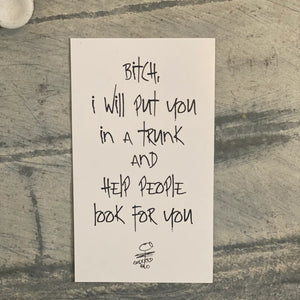 BitCH,
i will put you
in a trunk
AND
HELP PEOPLE
look FOR YOU